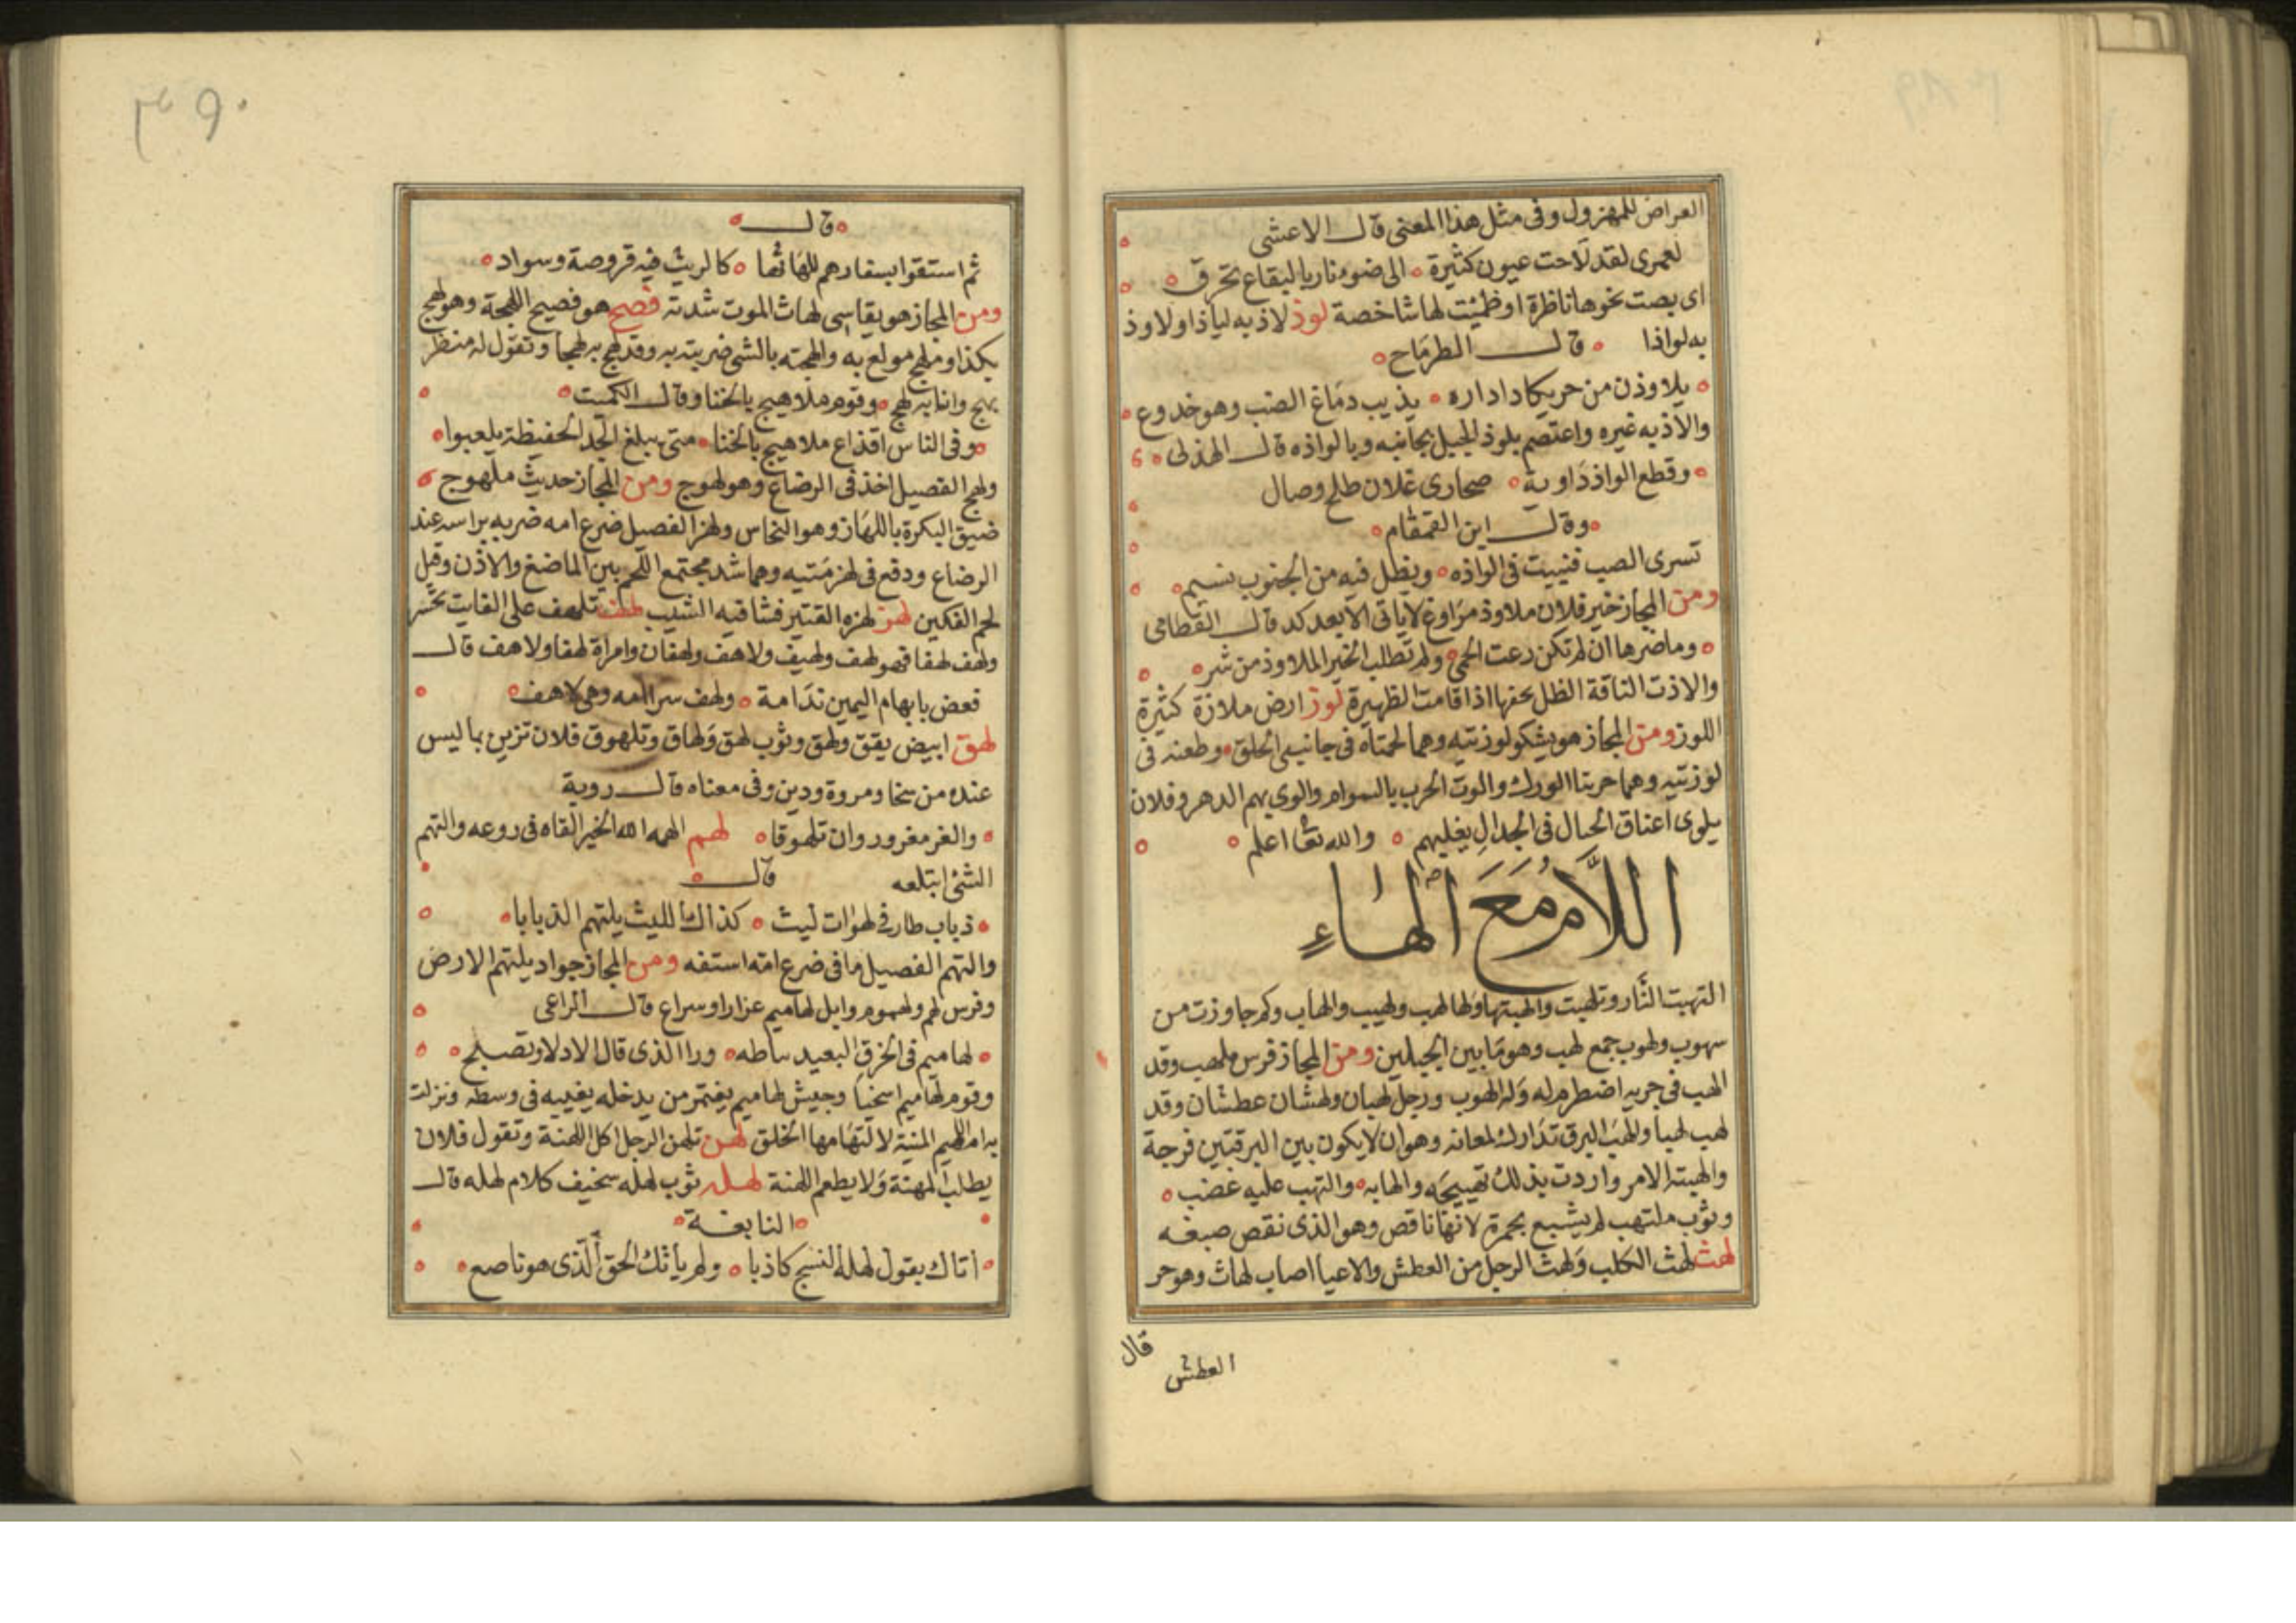 العراض للمهزول وفى مثل هذا المعنى قال الاعشى
لعمرى لقد لاحت عيون كثيرة الى ضوء نار باليقاع تحرق
اى بصت نحوها ناظرة او ظمئت لها شاخصة لوذ لاذ به لياذا ولاوذ
به لواذا قال الطرماح
يلاوذن من حر يكاد اداره يذيب دماغ الضب وهو خدوع
والاذ به غيره واعتصم بلوذ الجبل بجانبه وبالواذه قال الهذلى
وقطع الواذ داوية صحارى غلان طلح وصال
وقال ابن القمقام
تسرى الصب فتبيت فى الواذه ويظل فيه من الجنوب نسيم
ومن المجاز خير فلان ملاوذ مراوغ لا ياتى الا بعد كد قال القطامى
وما ضرها ان لم تكن رعت الحمى ولم تطلب الخير الملاوذ من شر
والاذت الناقة الظل بخفها اذا قامت الظهيرة لوز ارض ملازة كثيرة
اللوز ومن المجاز هو يشكو لوزتيه وهما لحمتاه فى جانبى الحلق وطعنه فى
لوزتيه وهما خربتا الورك والوت الحرب بالسوام والوى بهم الدهر وفلان
يلوى اعناق الحبال فى الجدال يغلبهم والله تعا اعلم
اللام مع الهاء
التهبت النار وتلهبت والهبتها ولها لهب ولهيب والهاب وكم جاوزت من
سهوب ولهوب جمع لهب وهو ما بين الجبلين ومن المجاز فرس ملهب وقد
الهب فى جريه اضطرم له وله الهوب ورجل لهبان ولهثان عطشان وقد
لهب لهبا والهب البرق تدارك لمعانه وهو ان لا يكون بين البرقتين فرجة
والهبته الامر واردت بذلك تهييجه والهابه والتهب عليه غضب
وثوب ملتهب لم يشبع بحمرة لانها ناقص وهو الذى نقص صبغه
لهث لهث الكلب ولهث الرجل من العطش والاعيا اصاب لهاث وهو حر
العطش
قال
٣٩٠
قال
ثم استقوا بسفارهم للهاثها كالريث فيه قروصة وسواد
ومن المجاز هو يقاسى لهاث الموت شدته فصح هو فصيح اللهجة وهو لهج
بكذا وملهج مولع به والهجته بالشى ضريته به وقد لهج به لهجا وتقول له منظر
بهج وانا به لهج وقوم ملاهيج بالخنا وقال الكميت
وفى الناس اقذاع ملاهيج بالخنا متى يبلغ الجد الحفيظة يلعبوا
ولهج الفصيل اخذ فى الرضاع وهو لهوج ومن المجاز حديث ملهوج
ضيق البكرة باللهاز وهو النخاس ولهز الفصيل ضرع امه ضربه براسه عند
الرضاع ودفع فى لهزمتيه وهما شد مجتمع اللحم بين الماضغ والاذن وقيل
لحم الفكين لهز لهزه القتير فشا فيه الشيب لهف تلهف على الفايت تحسر
ولهف لهفا فهو لهف ولهيف ولاهف ولهفان وامراة لهفا ولاهف قال
فعض بابهام اليمين ندامة ولهف سرا امه وهى لاهف
لهق ابيض يقق ولهق وثوب لهق ولهاق وتلهوق فلان تزين بما ليس
عنده من سخا ومروة ودين وفى معناه قال روبة
والغر مغرور وان تلهوقا لهم الهمه الله الخير القاه فى روعه والتهم
الشئ ابتلعه قال
ذباب طار فى لهوات ليث كذاك الليث يلتهم الذبابا
والتهم الفصيل ما فى ضرع امه استفه ومن المجاز جواد يلتهم الارض
وفرس لهم ولهموم وابل لهاميم غزار او سراع قال الراعى
لهاميم فى الخرق البعيد نياطه ورا الذى قال الادلا وتصبح
وقوم لهاميم اسخيا وجيش لهاميم يغتمر من يدخله يغيبه فى وسطه ونزلت
به ام اللهيم المنية لالتهامها الخلق لهن تلهن الرجل اكل اللهنة وتقول فلان
يطلب المهنة ولا يطعم اللهنة لهله ثوب لهله سخيف كلام لهله قال
النابغة
اتاك بقول لهله النسج كاذبا ولم يأتك الحق الذى هو ناصع